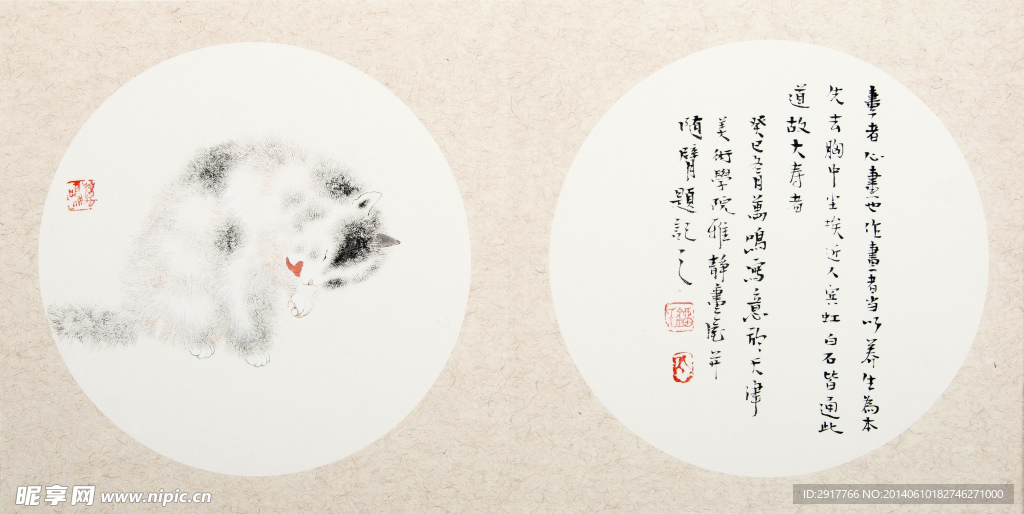 畫者心畫也作畫者当以养生為本
先去胸中尘埃近人宾虹白石皆通此
道故大寿者
癸巳冬月萬鳴寫意於天津
美術學院雅靜畫室并
随臂題記之
昵享网 www.nipic.cn
ID:2917766 NO:20140610182746271000